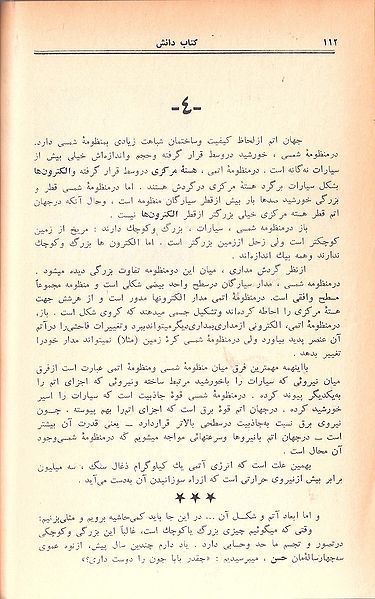 ۱۱۲
کتاب دانش
-٤-
جهان اتم ازلحاظ کیفیت وساختمان شباهت زیادی بمنظومهٔ شمسی دارد.
درمنظومهٔ شمسی ، خورشید دروسط قرار گرفته وحجم واندازه‌اش خیلی بیش از
سیارات نه‌گانه است . درمنظومهٔ اتمی ، هستهٔ مرکزی دروسط قرار گرفته والکترون‌ها
بشکل سیارات برگرد هستهٔ مرکزی درگردش هستند . اما درمنظومهٔ شمسی قطر و
بزرگی خورشید صدها بار بیش ازقطر سیارگان منظومه است ، وحال آنکه درجهان
اتم قطر هسته مرکزی خیلی بزرگتر ازقطر الکترون‌ها نیست .
باز درمنظومه شمسی ، سیارات ، بزرگ وکوچک دارند : مریخ از زمین
کوچکتر است ولی زحل اززمین بزرگتر است . اما الکترون ها بزرگ وکوچک
ندارند وهمه بیک اندازه‌اند .
ازنظر گردش مداری ، میان این دومنظومه تفاوت بزرگی دیده میشود .
درمنظومهٔ شمسی ، مدار سیارگان درسطح واحد بیضی شکلی است و منظومه مجموعاً
مسطح وافقی است. درمنظومهٔ اتمی مدار الکترونها مدور است و از هرشش جهت
هستهٔ مرکزی را احاطه کرده‌اند وتشکیل جسمی میدهند که کروی شکل است . باز،
درمنظومهٔ اتمی، الکترونی ازمداری‌بمداری‌دیگرمیتواندبپرد وتغییرات فاحشی‌را درآتم
آن عنصر پدید بیاورد ولی درمنظومهٔ شمسی کرهٔ زمین (مثلا) نمیتواند مدار خودرا
تغییر بدهد .
بااینهمه مهمترین فرق میان منظومهٔ شمسی ومنظومهٔ اتمی عبارت است ازفرق
میان نیروئی که سیارات را باخورشید مرتبط ساخته ونیروئی که اجزای اتم را
به‌یکدیگر پیوند کرده . درمنظومهٔ شمسی قوهٔ جاذبیت است که سیارات را اسیر
خورشید کرده ، درجهان اتم قوهٔ برق است که اجزای اتم‌را بهم پیوسته . چــون
نیروی برق نسبت به‌جاذبیت درسطحی بالاتر قراردارد ـ یعنی قدرت آن بیشتر
است ـ درجهان اتم بانیروها وسرعتهائی مواجه میشویم که درمنظومهٔ شمسی‌وجود
آن محال است .
بهمین علت است که انرژی آتمی یك کیلوگرام ذغال سنك ، سه میلیون
برابر بیش ازنیروی حرارتی است که ازراه سوزانیدن آن به‌دست می‌آید .
★★★
و اما ابعاد آتم و شکــل آن ... در این جا باید کمی‌حاشیه برویم و مثلی‌بزنیم:
وقتی که میگوئیم چیزی بزرگ یاکوچك است، غالباً این بزرگی وکوچکی
درتصور و تجسم ما حد وحسابی دارد . یاد دارم چندین سال پیش، ازنوه عموی
سه‌چهارسالهٔ‌مان حسن ، میپرسیدیم : «چقدر بابا جون را دوست داری؟»